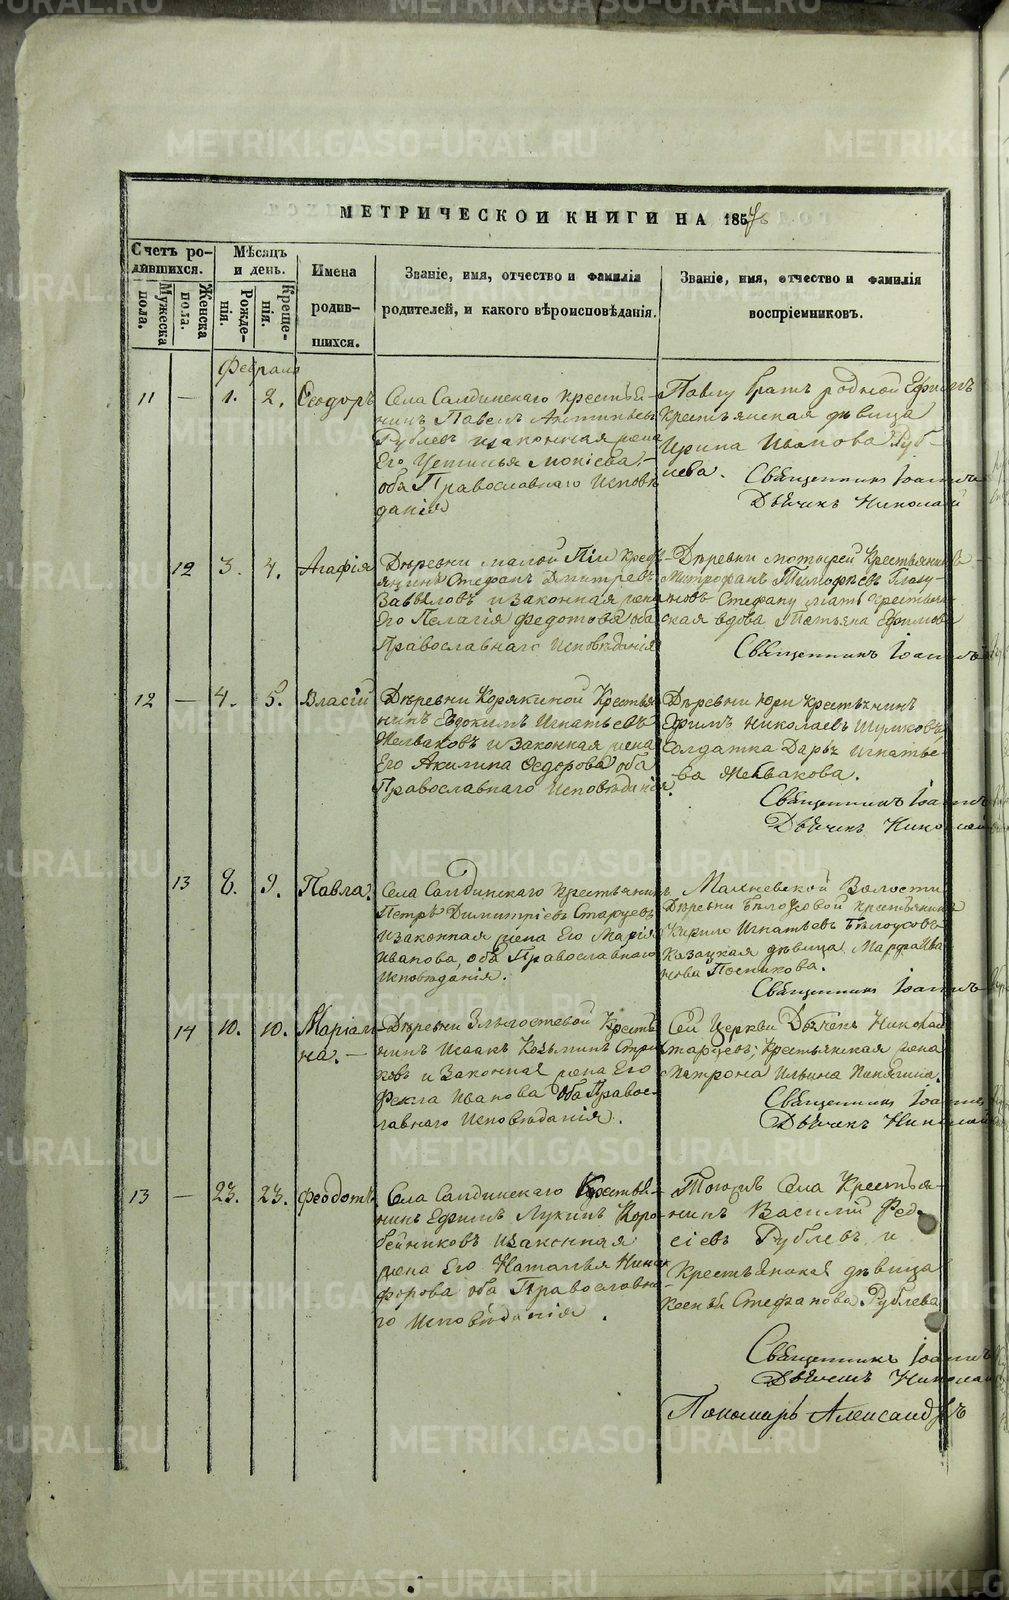 МЕТРИЧЕСКОЙ КНИГИ НА 1857/8
Счетъ ро-
дившихся.
Мужеска
пола.
Женска
пола.
Мѣсяцъ
и день.
Рожде-
нія.
Креще-
нія.
Имена
родив-
шихся.
Званіе, имя, отчество и фамилія
родителей, и какого вѣроисповѣданія.
Званіе, имя, отчество и фамилія
воспріемниковъ.
Февраля
11 — 1. 2. Ѳеодоръ
Села Салдинскаго крестья-
нинъ Павелъ Антипьевъ
Рублевъ и законная жена
Его Устинья Мокіева,
оба Православнаго Исповѣ
данія
Павлу братъ родной Ефимъ
Крестьянская дѣвица
Ирина Иванова Руб-
лева. Священникъ Іоаннъ
Дьячекъ Николай
12 3. 4. Агафія
Деревни малой Крест
янинъ Стефанъ Дмитріевъ
Завьяловъ и законная жена
Его Пелагія Федотова оба
Православнаго Исповѣданія
Деревни Крестьянинъ
Митрофанъ Тимофѣевъ
Стефану мать крестьян
ская вдова Татьяна Ефимова
Священникъ Іоаннъ
12 — 4. 5. Власій
Деревни Корякиной Крестья
нинъ Евдокимъ Игнатьевъ
Желваковъ и Законная жена
Его Акилина Ѳедорова оба
Православнаго Исповѣданія.
Деревни Юри Крестьянинъ
Ефимъ Николаевъ Шумковъ
Солдатка Дарья Игнатье-
ва Желвакова.
Священникъ Іоаннъ
Дьячекъ Николай
13 8. 9. Павла.
Села Салдинскаго крестьянинъ
Петръ Димитріевъ Старцевъ
и законная жена Его Марія
Иванова, оба Православнаго
Исповѣданія.
Махневской Волости
Деревни Бѣлоусовой крестьянинъ
Кирило Игнатьевъ Бѣлоусовъ
Казацкая дѣвица Марфа Ива
нова Посникова.
Священникъ Іоаннъ
14 10. 10. Маріам-
на. —
Деревни Злыгостевой Кресть
нинъ Исаакъ Козьминъ
и Законная жена Его
Фекла Иванова оба Право-
лавнаго Исповѣданія.
Сей Церкви Дьячекъ Николай
Старцевъ, Крестьянская жена
Матрона Ильина
Священникъ Іоаннъ
Дьячекъ Николай
13 — 23. 23. Феодотъ
Села Салдинскаго Крестья-
нинъ Ефимъ Лукинъ Коро-
бейниковъ и законная
жена Его Наталья Ники
форова оба Православна-
го Исповѣданія.
Тогожъ Села Крестья-
нинъ Василій
Рублевъ и
Крестьянская дѣвица
Ксенья Стефанова Рублева
Священникъ Іоаннъ
Дьячекъ Николай
Пономарь Александръ
METRIKI.GASO-URAL.RU